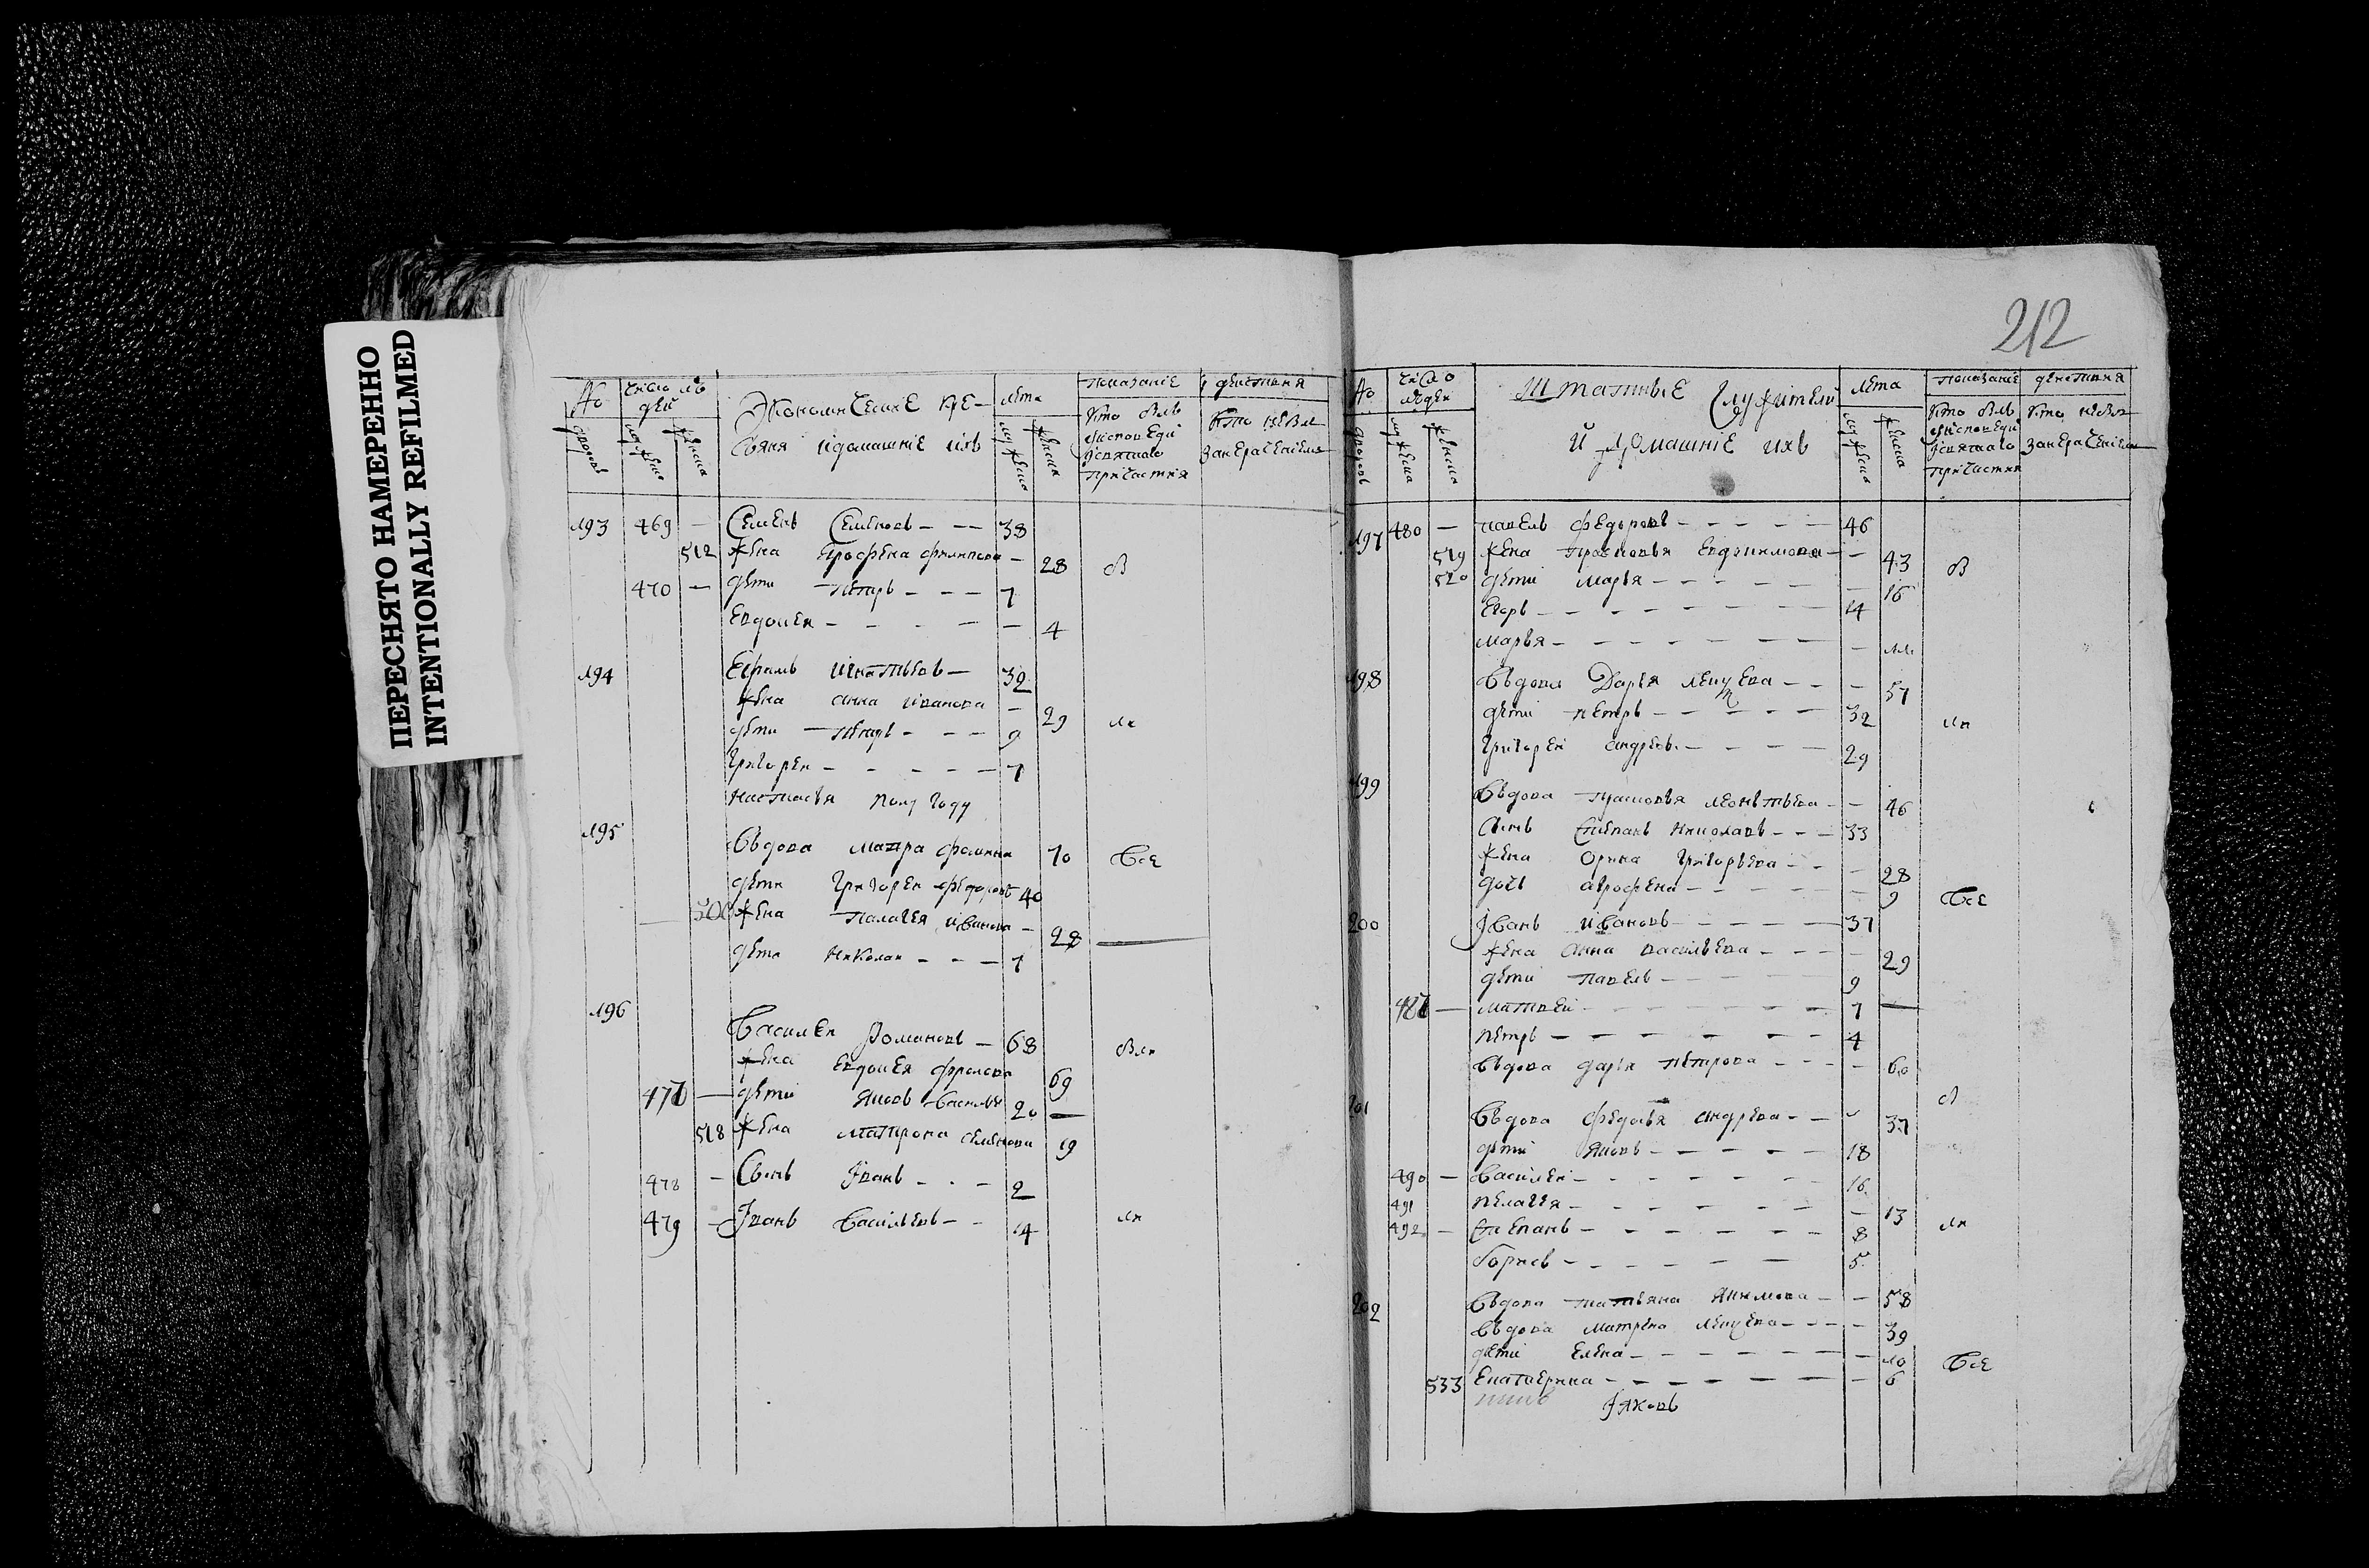 ПЕРЕСНЯТО НАМЕРЕННО
INTENTIONALLY REFILMED
212
№ дворовъ
число людей
мужеска женска
Экономическiе кре-
стьяня и домашнiе ихъ
лета
мужеска женска
показанiе действия
кто былъ
у исповеди
и святаго
причастия
кто не был
за нерачением
193 469 — Семенъ Семеновъ — — 38
512 жена Ерофена Филипова — 28 б
470 — дети Петръ — — — 7
Евдокея — — — — — 4
194 Ефимъ Игнатьевъ — 32
жена Анна Иванова — 29 ли
дети — — — 9
Григореи — — — — — 7
Настасья полугоду
195 Вдова Матра Фомина 70 Все
дети Григореи Федоровъ 40
500 жена Палагея Иванова — 28
дети Николаи — — — 7
196 Василеи Романовъ — 68 были
жена Евдокея Фролова 69
дети Яковъ Василье 20 —
518 жена Матрона Семенова 19
478 — Сынъ Иванъ — — — 2
479 — Иванъ Васильевъ — — 14 ли
№ дворовъ
число людей
мужеска женска
Штатные Служители
и Домашнiе ихъ
лета
мужеска женска
показанiе действия
кто былъ
у исповеди
и святаго
причастия
кто не был
за нерачением
197 480 — Павелъ Федоровъ — — — — — 46
519 жена Прасковья Евдокимова — — 43 б
520 дети Марья — — — — — — 16
Егоръ — — — — — — — 14
Марья — — — — — — — — 11
198 Вдова Дарья — — — 57
дети Петръ — — — — — 32 ли
Григореи Андреевъ — — — — 29
199 Вдова Прасковья Леонтьева — — 46
Сынъ Степанъ Николаевъ — — — 33
жена Орина Григорьева — — — 28
дочь Аграфена — — — — — 9 Все
200 Иванъ Ивановъ — — — — — 37
жена Анна Васильева — — — — 29
дети Павелъ — — — — — 9
487 — Матвеи — — — — — — — 7 —
Петръ — — — — — — — 4
Вдова Дарья Петрова — — — — 60
201 Вдова Федосья Андреева — — 37 б
дети Яковъ — — — — — 18
490 — Василеи — — — — — — — 16
491 Пелагея — — — — — — — 13
492 — Степанъ — — — — — — 8 ли
Борисъ — — — — — — 5
202 Вдова Татьяна Якимова — — 58
Вдова Матрена — — — — 39
дети Елена — — — — — — — 10 Все
533 Екатерина — — — — — — — 6
Iяковъ